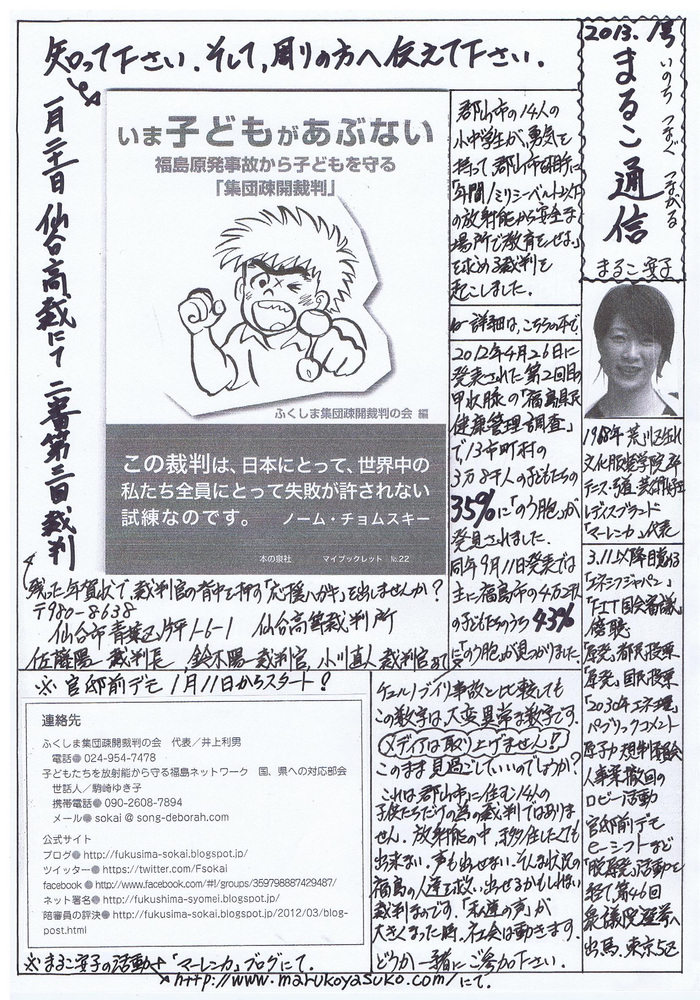 2013.1号
いのち つなぐ つながる
まるこ通信
まるこ安子
知って下さい。そして、周りの方へ伝えて下さい。
一月二十一日 仙台高裁にて 二審第三回裁判
いま子どもがあぶない
福島原発事故から子どもを守る
「集団疎開裁判」
ふくしま集団疎開裁判の会 編
この裁判は、日本にとって、世界中の
私たち全員にとって失敗が許されない
試練なのです。 ノーム・チョムスキー
本の泉社 マイブックレット No.22
郡山市の14人の
小中学生が、勇気を
持って、郡山市相手に
「年間1ミリシーベルト以下
の放射能から安全な
場所で教育をせよ」
を求める裁判を
起こしました。
詳細は、こちらの本で。
2012年4月26日に
発表された第2回目
甲状腺の「福島県民
健康管理調査」
で13市町村の
3万8千人の子どもたちの
35%に「のう胞」が
発見されました。
同年9月11日発表では
主に福島市の4万2千
の子どもたちのうち43%
に「のう胞」が見つかりました。
1968年 荒川区生れ
文化服装学院卒
テニス・弓道
レディスブランド
「マーレンカ」代表
3.11以降目覚める
「エネシフジャパン」
「FIT国会審議」
傍聴
「原発」都民投票
「原発」国民投票
「2030年エネ環」
パブリックコメント
原子力規制委員会
人事案撤回の
ロビー活動
官邸前デモ
e-シフトなど
「脱原発」活動を
経て、第46回
衆議院選挙へ
出馬。東京5区
残った年賀状で、裁判官の背中を押す「応援ハガキ」を出しませんか？
〒980-8638
仙台市青葉区片平1-6-1 仙台高等裁判所
佐藤陽一裁判長 鈴木陽一裁判官、小川直人裁判官あて
※ 官邸前デモ 1月11日からスタート！
連絡先
ふくしま集団疎開裁判の会 代表／井上利男
電話● 024-954-7478
子どもたちを放射能から守る福島ネットワーク 国、県への対応部会
世話人／駒崎ゆき子
携帯電話● 090-2608-7894
メール● sokai @ song-deborah.com
公式サイト
ブログ● http://fukusima-sokai.blogspot.jp/
ツイッター● https://twitter.com/Fsokai
facebook ● http://www.facebook.com/#!/groups/359798887429487/
ネット署名● http://fukushima-syomei.blogspot.jp/
陪審員の評決● http://fukusima-sokai.blogspot.jp/2012/03/blog-
post.html
チェルノブイリ事故と比較しても
この数字は、大変異常な数字です。
メディアは取り上げません！
このまま見過ごしていいのでしょうか？
これは郡山市に住む14人の
子供たちだけの為の裁判ではありま
せん。放射能の中、移住したくても
出来ない。声も出せない。そんな状況の
福島の人達を救い出せるかもしれない
裁判なのです。「私達の声」が
大きくなった時、社会は動きます。
どうか一緒にご参加下さい。
※まるこ安子の活動は「マーレンカ」ブログにて。
http://www.marukoyasuko.com/にて。